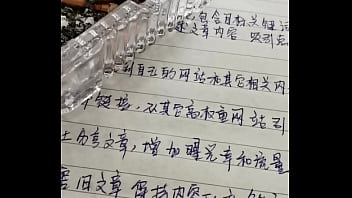 包含目标关键词
文章内容 吸引点
到自己的网站和其它相关内
链接,从其它高权重网站引
上分享文章,增加曝光率和流量
旧文章 保持内容